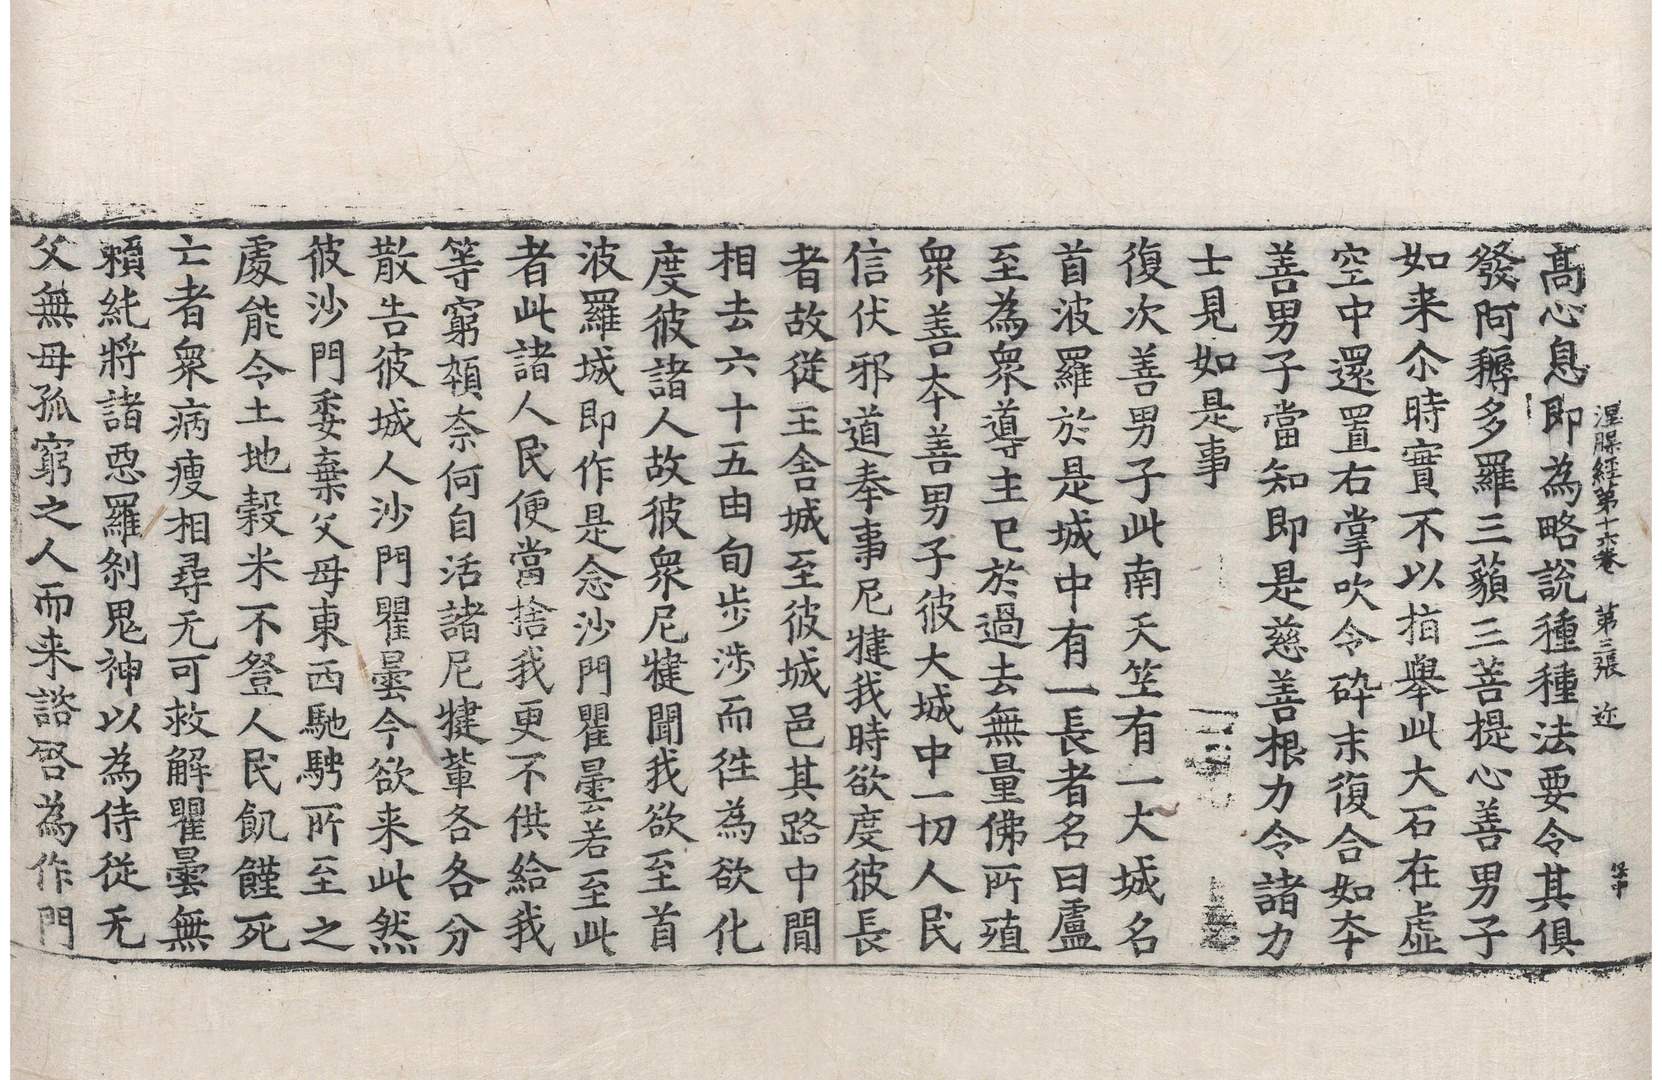 涅槃經第十六卷 第三張 近
髙心息即為略說種種法要令其俱
發阿耨多羅三藐三菩提心善男子
如来尒時實不以指舉此大石在虚
空中還置右掌吹令碎末復合如夲
善男子當知即是慈善根力令諸力
士見如是事
復次善男子此南天笁有一大城名
首波羅於是城中有一長者名曰盧
至為衆導主已於過去無量佛所殖
衆善夲善男子彼大城中一切人民
信伏邪道奉事尼揵我時欲度彼長
者故從王舎城至彼城邑其路中間
相去六十五由旬步涉而徃為欲化
度彼諸人故彼衆尼揵聞我欲至首
波羅城即作是念沙門瞿曇若至此
者此諸人民便當捨我更不供給我
等窮顇奈何自活諸尼揵輩各各分
散告彼城人沙門瞿曇今欲来此然
彼沙門委棄父母東西馳騁所至之
處能令土地穀米不登人民飢饉死
亡者衆病瘦相尋无可救解瞿曇無
賴純將諸惡羅剎鬼神以為侍從无
父無母孤窮之人而来諮啓為作門